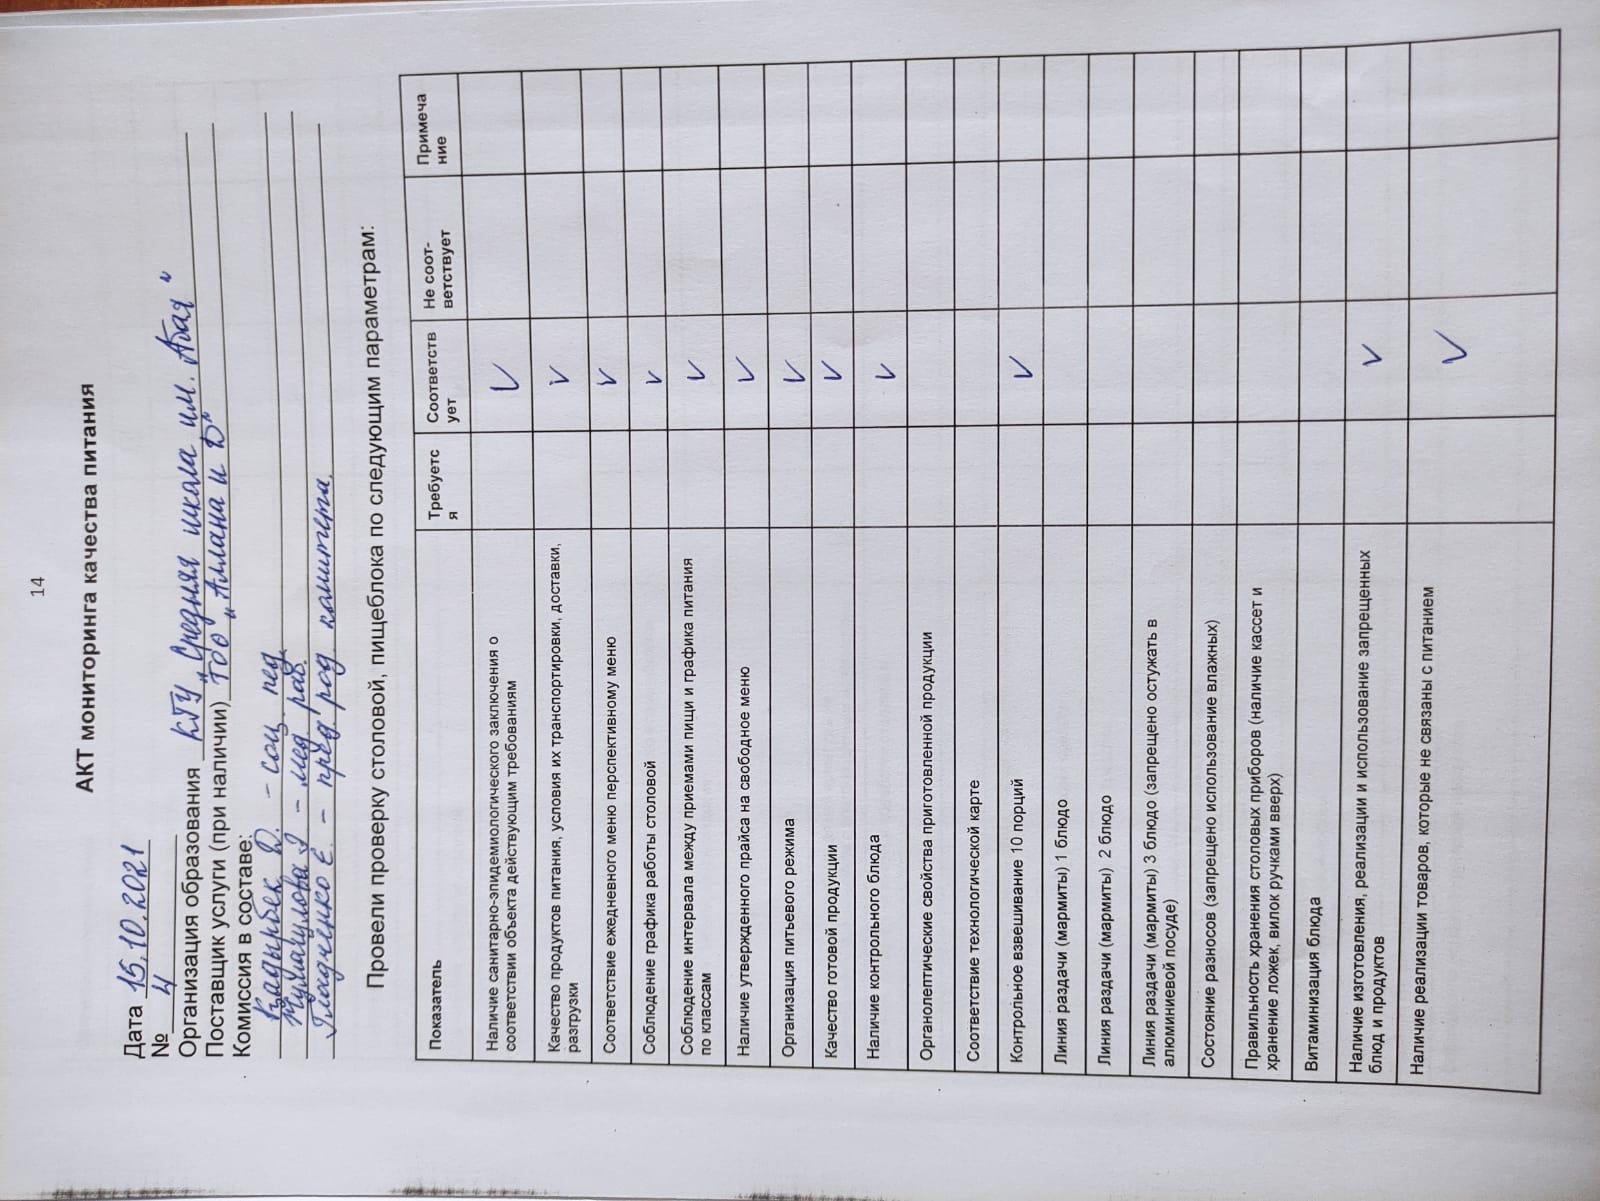 14
АКТ мониторинга качества питания
Дата 15.10.2021
№ 4
Организация образования КГУ „Средняя школа им. Абая"
Поставщик услуги (при наличии) ТОО „Алмана и D"
Комиссия в составе:
Қадырбек D. - соц. пед
- мед раб.
Гладченко Е. - пред. род. комитета.
Провели проверку столовой, пищеблока по следующим параметрам:
Показатель Требуетс я Соответств ует Не соот- ветствует Примеча ние
Наличие санитарно-эпидемиологического заключения о
соответствии объекта действующим требованиям V
Качество продуктов питания, условия их транспортировки, доставки,
разгрузки V
Соответствие ежедневного меню перспективному меню V
Соблюдение графика работы столовой V
Соблюдение интервала между приемами пищи и графика питания
по классам V
Наличие утвержденного прайса на свободное меню V
Организация питьевого режима V
Качество готовой продукции V
Наличие контрольного блюда V
Органолептические свойства приготовленной продукции
Соответствие технологической карте
Контрольное взвешивание 10 порций V
Линия раздачи (мармиты) 1 блюдо
Линия раздачи (мармиты) 2 блюдо
Линия раздачи (мармиты) 3 блюдо (запрещено остужать в
алюминиевой посуде)
Состояние разносов (запрещено использование влажных)
Правильность хранения столовых приборов (наличие кассет и
хранение ложек, вилок ручками вверх)
Витаминизация блюда
Наличие изготовления, реализации и использование запрещенных
блюд и продуктов V
Наличие реализации товаров, которые не связаны с питанием V